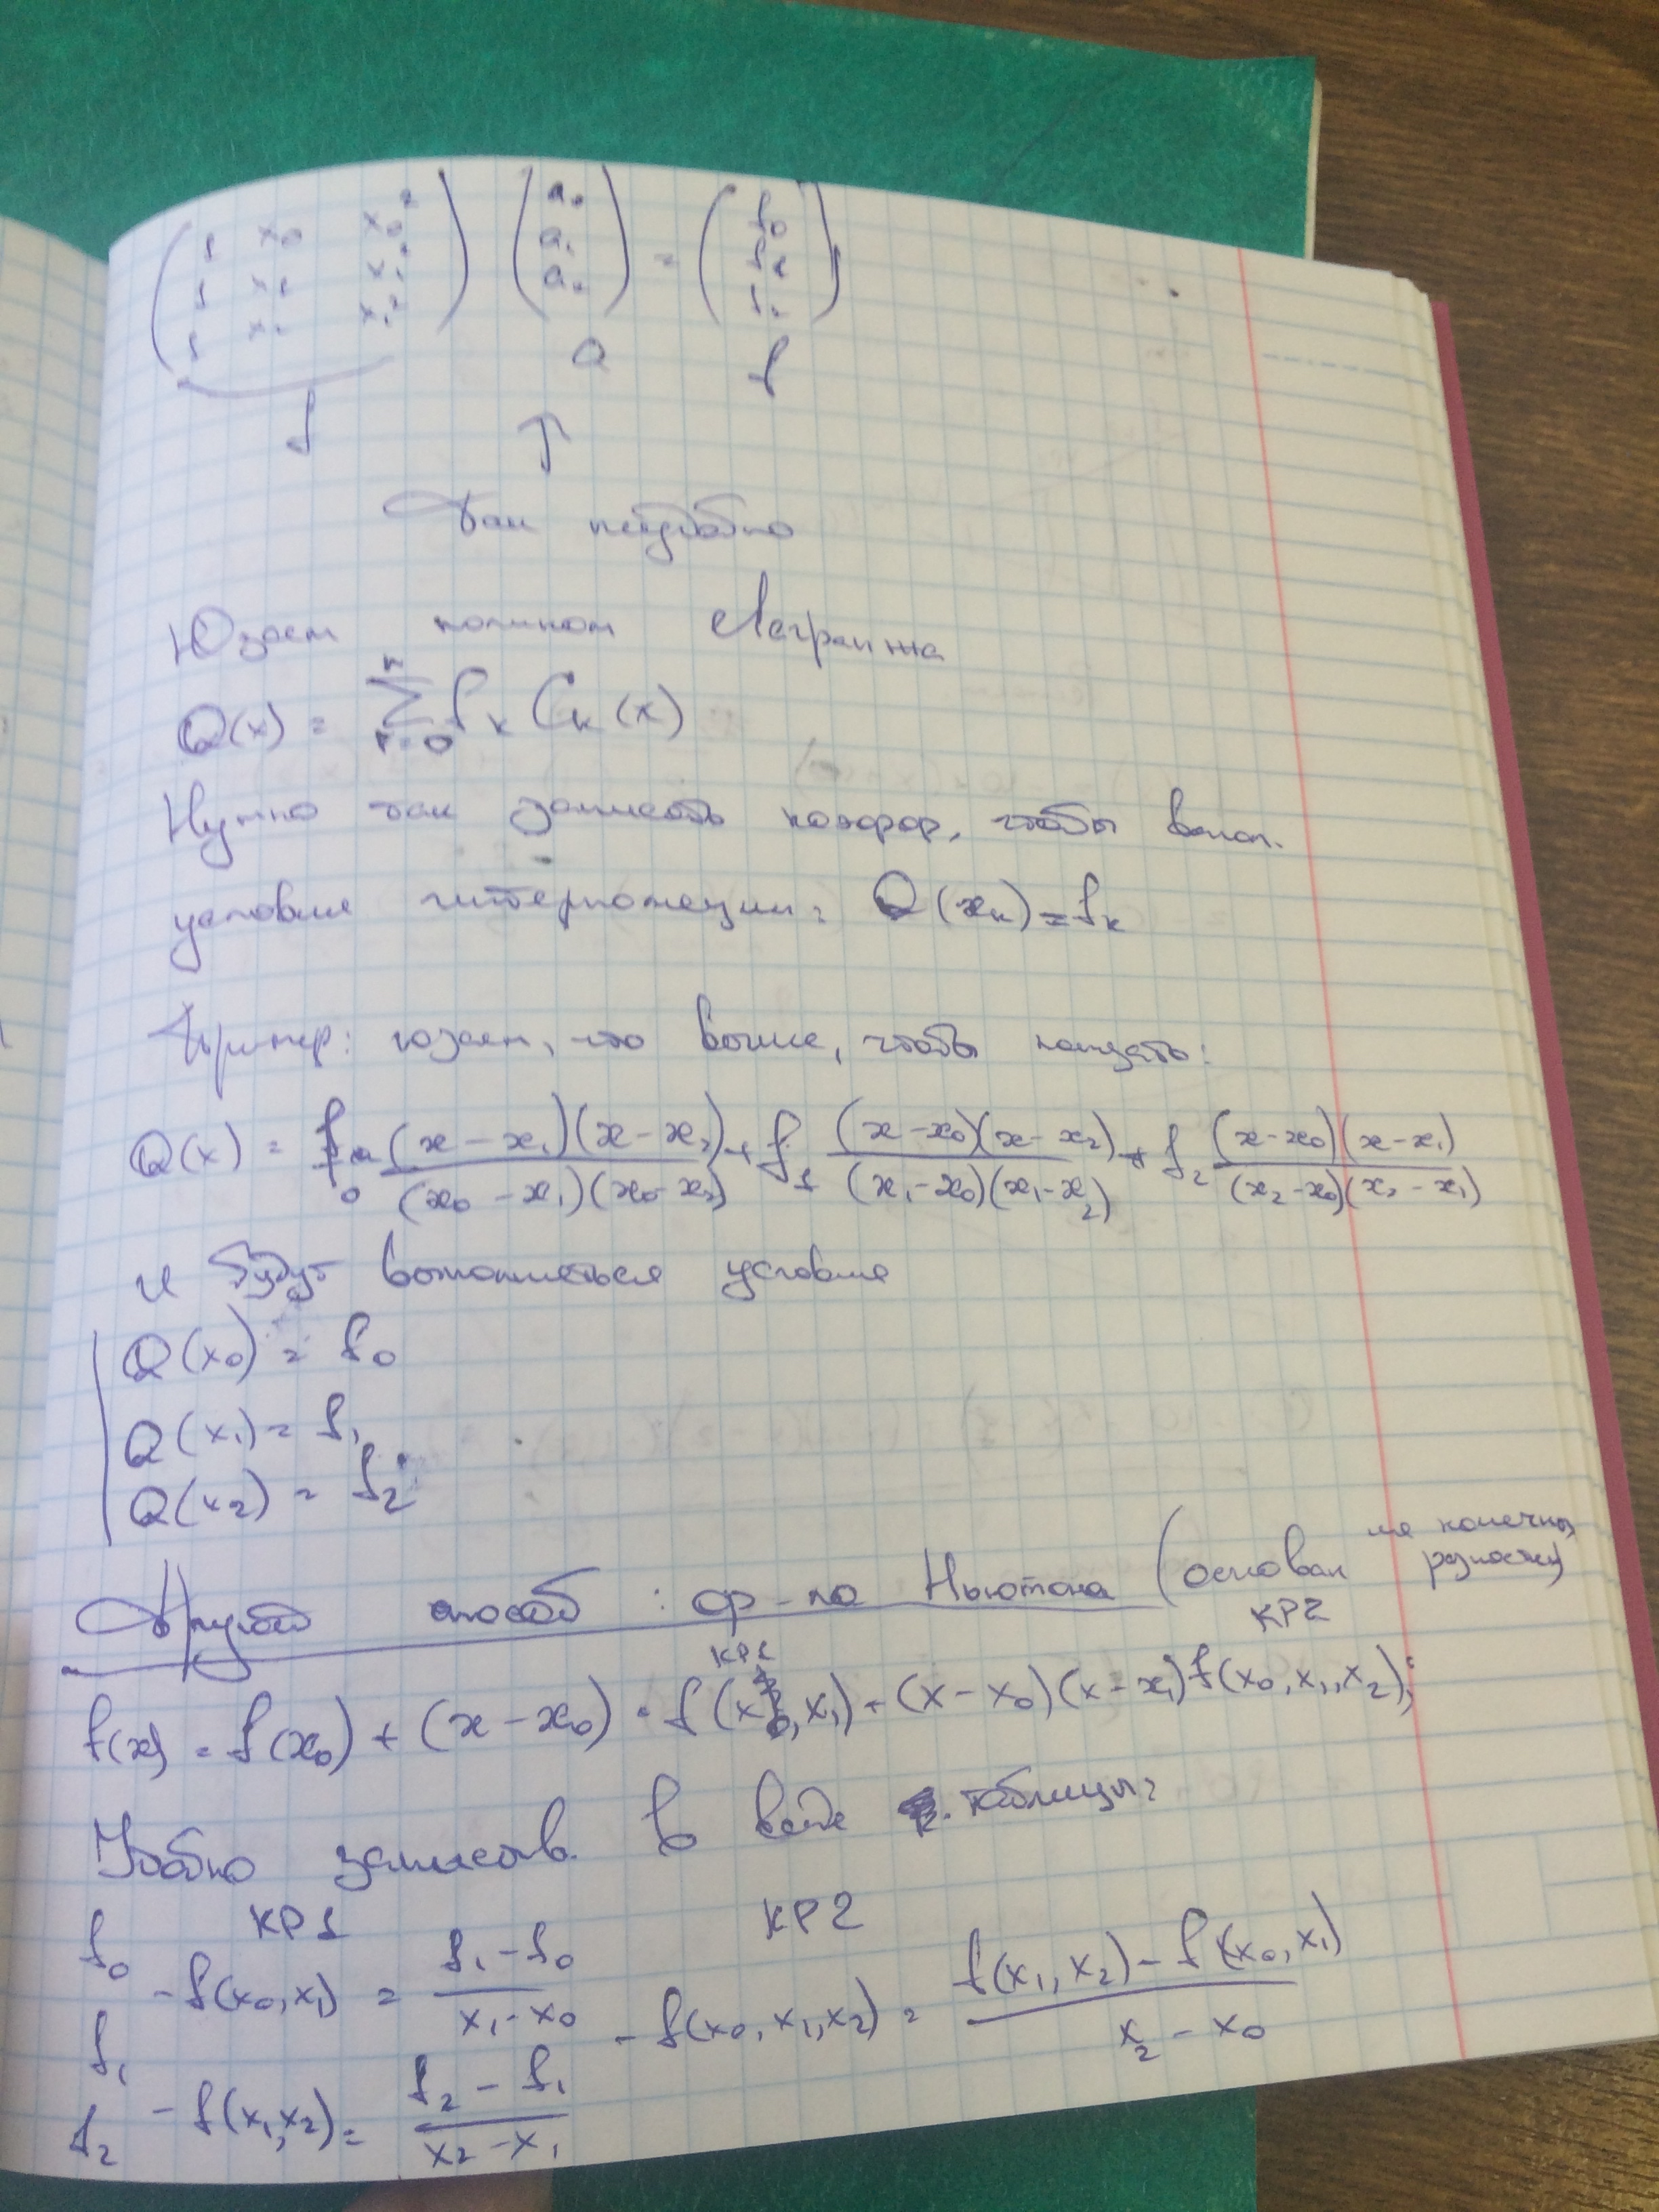 ( 1 x₀ x₀² ) ( a₀ ) = ( f₀ )
( 1 x₁ x₁² ) ( a₁ ) ( f₁ )
( 1 x₂ x₂² ) ( a₂ ) ( f₂ )
a f
↑
Так неудобно
Юзаем полином Лагранжа
Q(x) = Σ fₖ Cₖ(x)
Нужно так записать коэфф, чтобы выпол.
условие интерполяции: Q(xₖ) = fₖ
Пример: юзаем, что выше, чтобы показать:
Q(x) = f₀ (x - x₁)(x - x₂) / (x₀ - x₁)(x₀ - x₂) + f₁ (x - x₀)(x - x₂) / (x₁ - x₀)(x₁ - x₂) + f₂ (x - x₀)(x - x₁) / (x₂ - x₀)(x₂ - x₁)
и будут выполняться условия
Q(x₀) = f₀
Q(x₁) = f₁
Q(x₂) = f₂
Другой способ: ф-ла Ньютона (основан на конечных разностях)
КР1 КР2
f(x) = f(x₀) + (x - x₀) · f(x₀, x₁) + (x - x₀)(x - x₁) f(x₀, x₁, x₂);
Удобно записыв. в виде таблицы:
КР1 КР2
f₀
- f(x₀, x₁) = f₁ - f₀ / x₁ - x₀ - f(x₀, x₁, x₂) = f(x₁, x₂) - f(x₀, x₁) / x₂ - x₀
f₁
- f(x₁, x₂) = f₂ - f₁ / x₂ - x₁
f₂